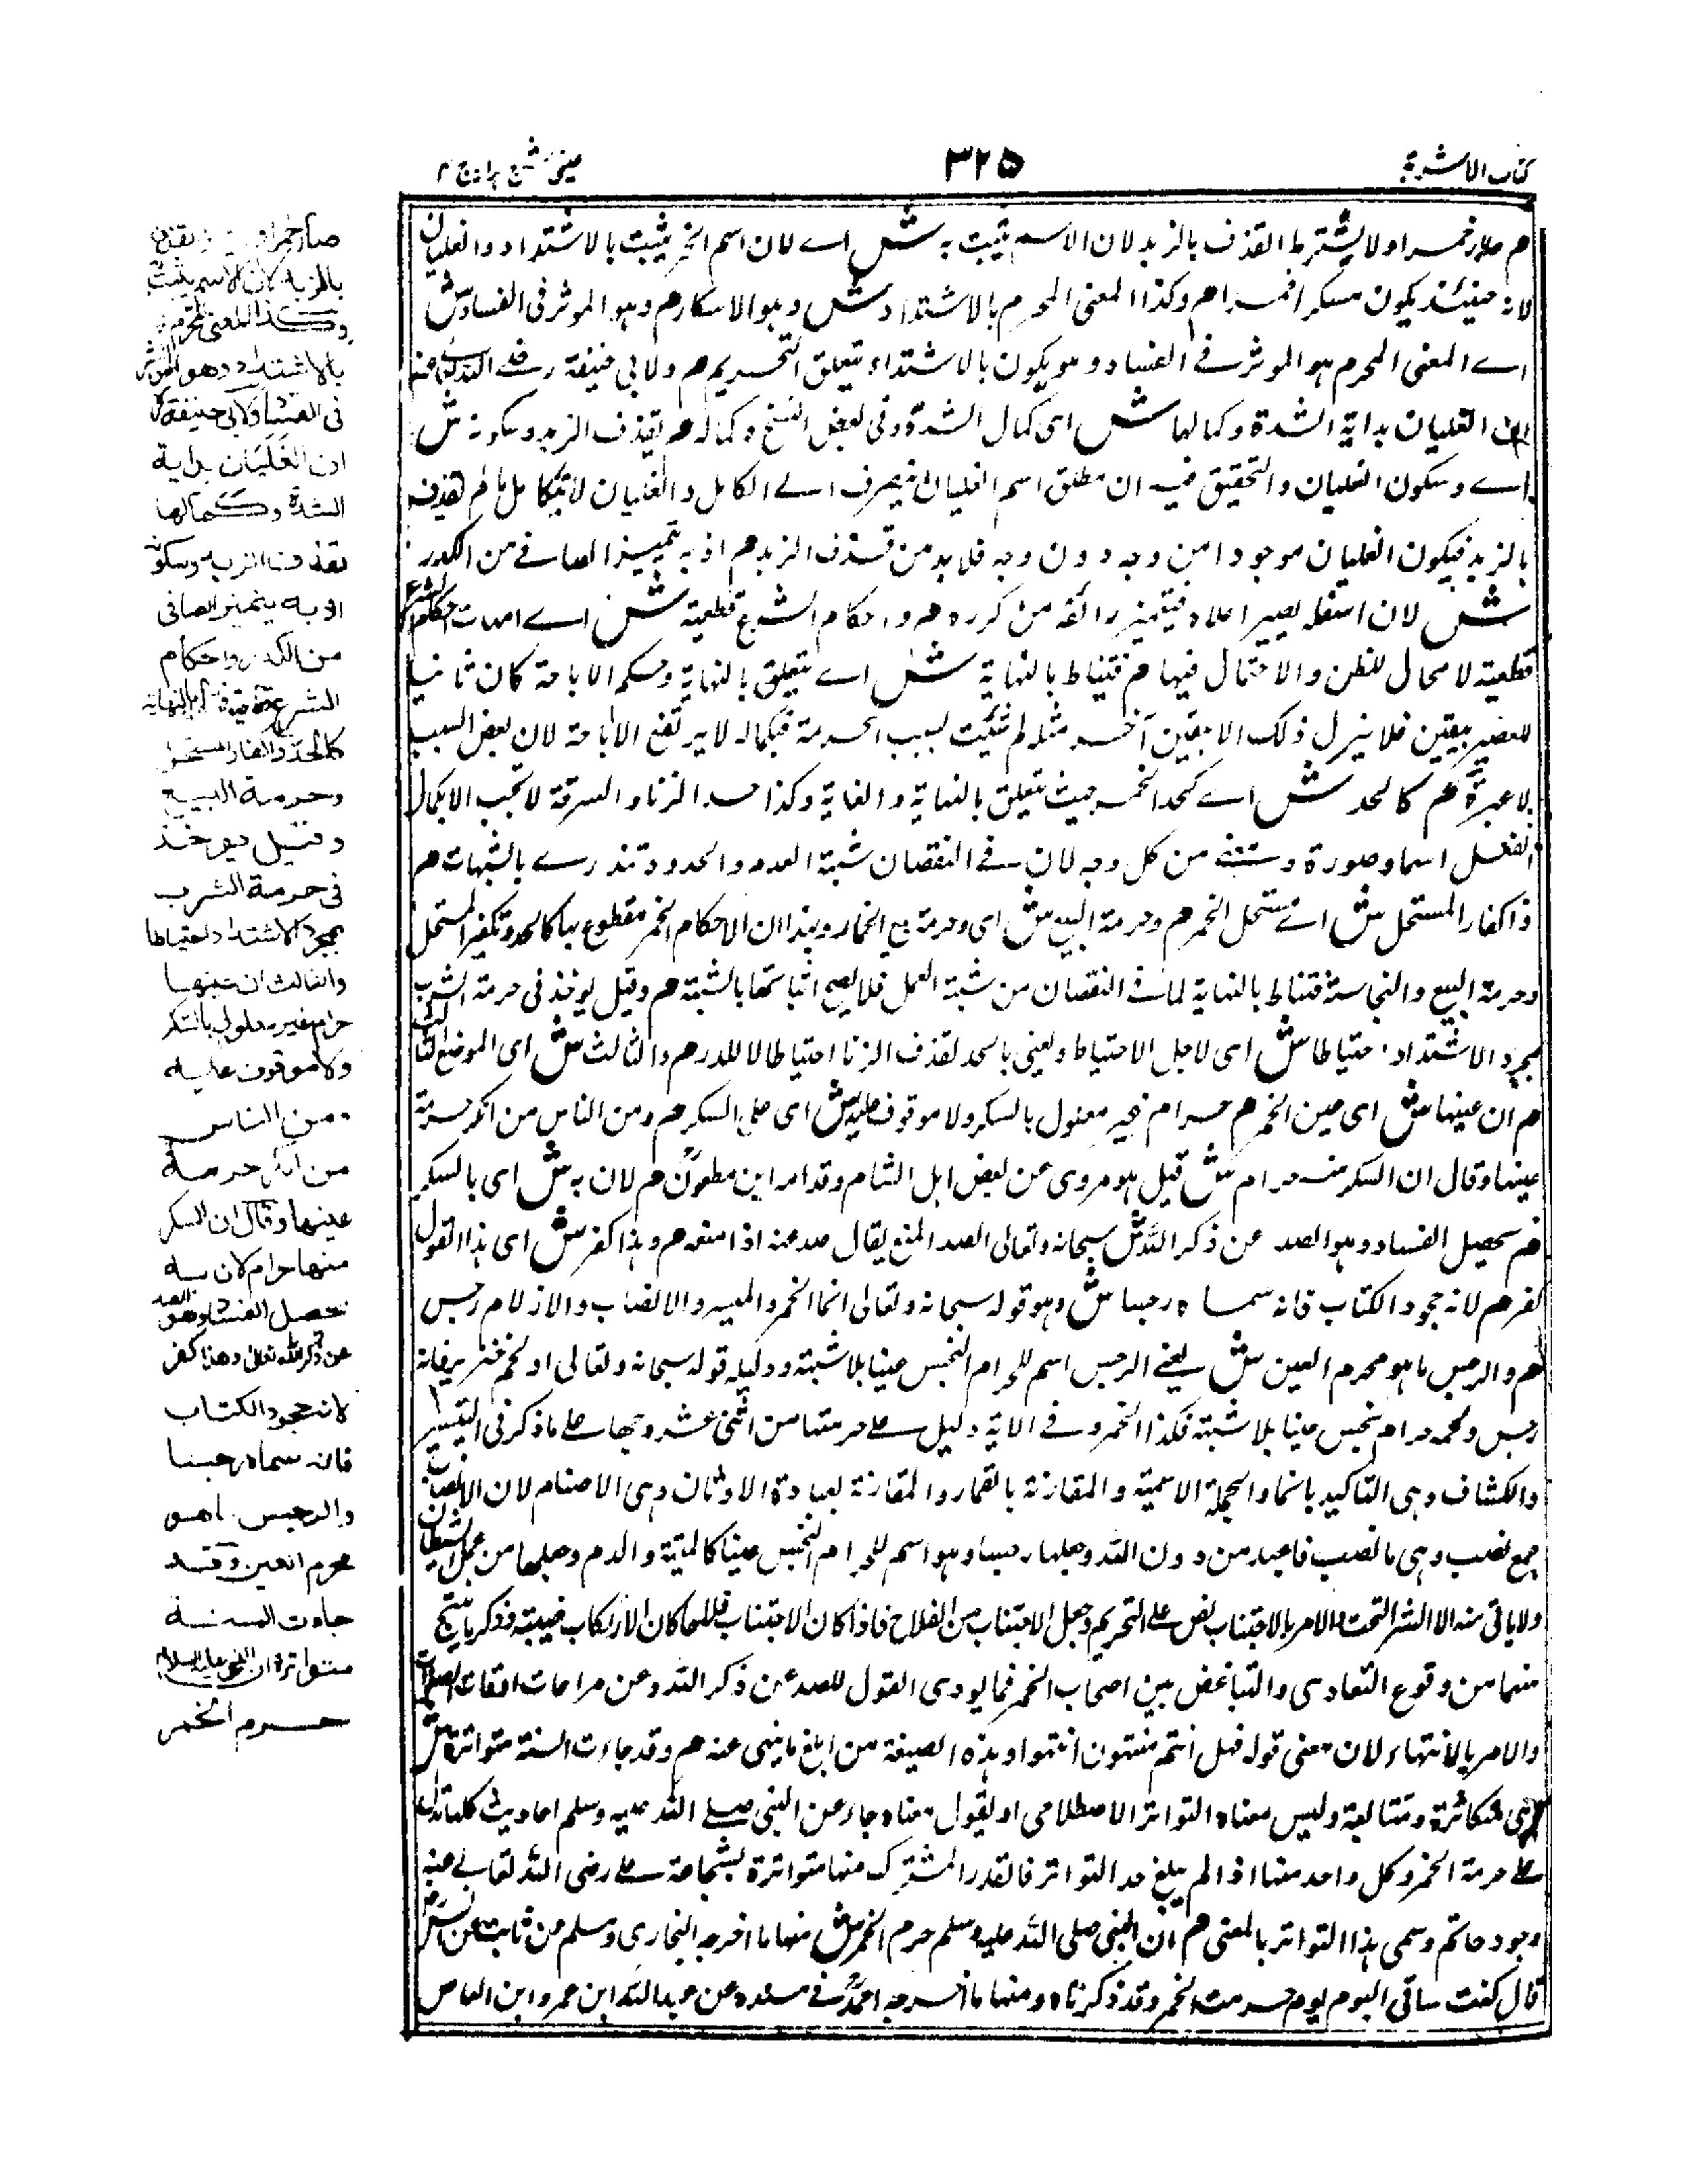 كتاب الاشربة
٣٢٥
عينى شرح هداية ج ٤
م صار خمرا ولا يشترط القذف بالزبد لان الاسم يثبت به ش اے لان اسم الخمر يثبت بالاشتداد والغليان
لانه حينئذ يكون مسكرا خمرا م وكذا المعنى المحرم بالاشتداد ش وهو الاسكار م وهو الموثر فى الفساد ش
اے المعنى المحرم هو الموثر فے الفساد وهو يكون بالاشتداد يتعلق التحريم م ولابي حنيفة رضے الله تعالى عنه
ان الغليان بداية الشدة وكمالها ش اى كمال الشدة وفى بعض النسخ وكماله م بقذف الزبد وسكونه ش
اے وسكون الغليان والتحقيق فيه ان مطلق اسم الغليان ينصرف الے الكامل والغليان لا يتكامل ما لم يقذف
بالزبد فيكون الغليان موجودا من وجه دون وجه فلا بد من قذف الزبد م اذ به يتميز الصافے من الكدر
ش لان اسفله يصير اعلاه فيتميز رائقه من كدره م واحكام الشرع قطعية ش اے امهات احكام الشرع
قطعية لا مجال للظن والاحتمال فيها م فتناط بالنهاية ش اے يتعلق بالنهاية وحكم الاباحة كان ثابتا
للعصير بيقين فلا يزول ذلك الا بيقين آخر مثله لم يثبت بسبب الحرمة فبكماله لا يرتفع الاباحة لان بعض السبب
لا عبرة م كالحد ش اے كحد الخمر حيث يتعلق بالنهاية والغاية وكذا حد الزنا والسرقة لا تجب الا بكمال
الفعل اسما وصورة ومعنى من كل وجه لان فے النقصان شبهة العدم والحدود تندرے بالشبهات م
واكفار المستحل ش اے مستحل الخمر م وحرمة البيع ش اى وحرمة بيع الخمار وبهذا ان الاحكام الخمر مقطوع بها كالحد وتكفير المستحل
وحرمة البيع والنجاسة فتناط بالنهاية لما فے النقصان من شبهة العمل فلا يصح اثباتها بالشبهة م وقيل يوخذ فى حرمة الشرب
بمجرد الاشتداد احتياطا ش اى لاجل الاحتياط ويعني بالحد بقذف الزبد احتياطا لا للدرء م والثالث ش اى الموضع الثالث
م ان عينها ش اى عين الخمر م حرام غير معلول بالسكر ولا موقوف عليه ش اى على السكر م ومن الناس من انكر حرمة
عينها وقال ان السكر منها حرام ش قيل هو مروى عن بعض اهل الشام وقدامه ابن مظعون م لان به ش اى بالسكر
م يحصل الفساد وهو الصد عن ذكر الله ش سبحانه وتعالى الصد المنع يقال صد عنه اذا منعه م وهذا كفر ش اى هذا القول
كفر م لانه جحود الكتاب فانه سماه رجسا ش وهو قوله سبحانه وتعالى انما الخمر والميسر والانصاب والازلام رجس
م والرجس ما هو محرم العين ش يعنے الرجس اسم للحرام النجس عينا بلا شبهة ودليله قوله سبحانه وتعالى او لحم خنزير فانه
رجس ولحمه حرام نجس عينا بلا شبهة فكذا الخمر وفے الاية دليل علے حرمتها من اثنى عشر وجها علے ما ذكر فى التيسير
والكشاف وهى التاكيد بانما والجملة الاسمية والمقارنة بالقمار والمقارنة لعبادة الاوثان وهى الاصنام لان الانصاب
جمع نصب وهى ما نصب فاعبد من دون الله وجعلها رجسا وهو اسم للحرام النجس عينا كالميتة والدم وجعلها من عمل الشيطان
ولا ياتى منه الا الشر البحت والامر بالاجتناب نص على التحريم وجعل الاجتناب من الفلاح فاذا كان الاجتناب فلاحا كان الارتكاب خيبة وذكر ما ينتج
منهما من وقوع التعادى والتباغض بين اصحاب الخمر فما يودى القول للصد عن ذكر الله وعن مراعات اوقات الصلوات
والامر بالانتهاء لان معنى قوله فهل انتم منتهون انتهوا وهذه الصيغة من ابلغ ما ينهى عنه م وقد جاءت السنة متواترة ش
اى متكاثرة ومتتابعة وليس معناه التواتر الاصطلاحى او يقول معناه جاء عن النبى صلے الله عليه وسلم احاديث كلها تدل
علے حرمة الخمر وكل واحد منها اذا لم يبلغ حد التواتر فالقدر المشترك منها متواترة كشجاعة علے رضى الله تعالے عنه
وجود حاتم وسمى هذا التواتر بالمعنى م ان النبى صلى الله عليه وسلم حرم الخمر ش منها ما اخرجه البخارى ومسلم عن ثابت عن انس رض
قال كنت ساقى القوم يوم حرمت الخمر وقد ذكرناه ومنها ما اخرجه احمد فے مسنده عن عبدالله ابن عمرو ابن العاص
صار خمرا بقذف
بالزبد لان الاسم يثبت
وكذا المعنى المحرم
بالاشتداد وهو الموثر
فى الفساد ولابى حنيفة
ان الغليان بداية
الشدة وكمالها
بقذف الزبد وسكونه
اذ به يتميز الصافى
من الكدر واحكام
الشرع قطعية فتناط بالنهاية
كالحد واكفار المستحل
وحرمة البيع
وقيل يوخذ
فى حرمة الشرب
بمجرد الاشتداد احتياطا
والثالث ان عينها
حرام غير معلول بالسكر
ولا موقوف عليه
ومن الناس
من انكر حرمة
عينها وقال ان السكر
منها حرام لان به
يحصل الفساد وهو الصد
عن ذكر الله تعالى وهذا كفر
لانه جحود الكتاب
فانه سماه رجسا
والرجس ما هو
محرم العين وقد
جاءت السنة
متواترة ان النبى عليه السلام
حرم الخمر